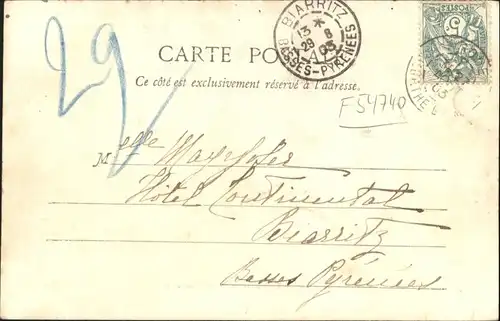 BIARRITZ
13 * 
29 8
03
BASSES-PYRÉNÉES
POSTES
CARTE POSTALE
Ce côté est exclusivement réservé à l'adresse.
29
F54740
Melle Mayhofer
Hôtel Continental
Biarritz
Basses Pyrénées